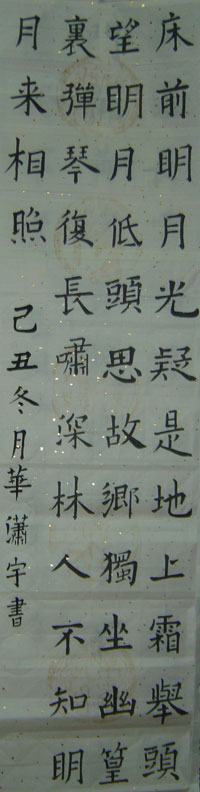 床前明月光疑是地上霜舉頭
望明月低頭思故鄉獨坐幽篁
裏彈琴復長嘯深林人不知明
月来相照
己丑冬月華瀟宇書